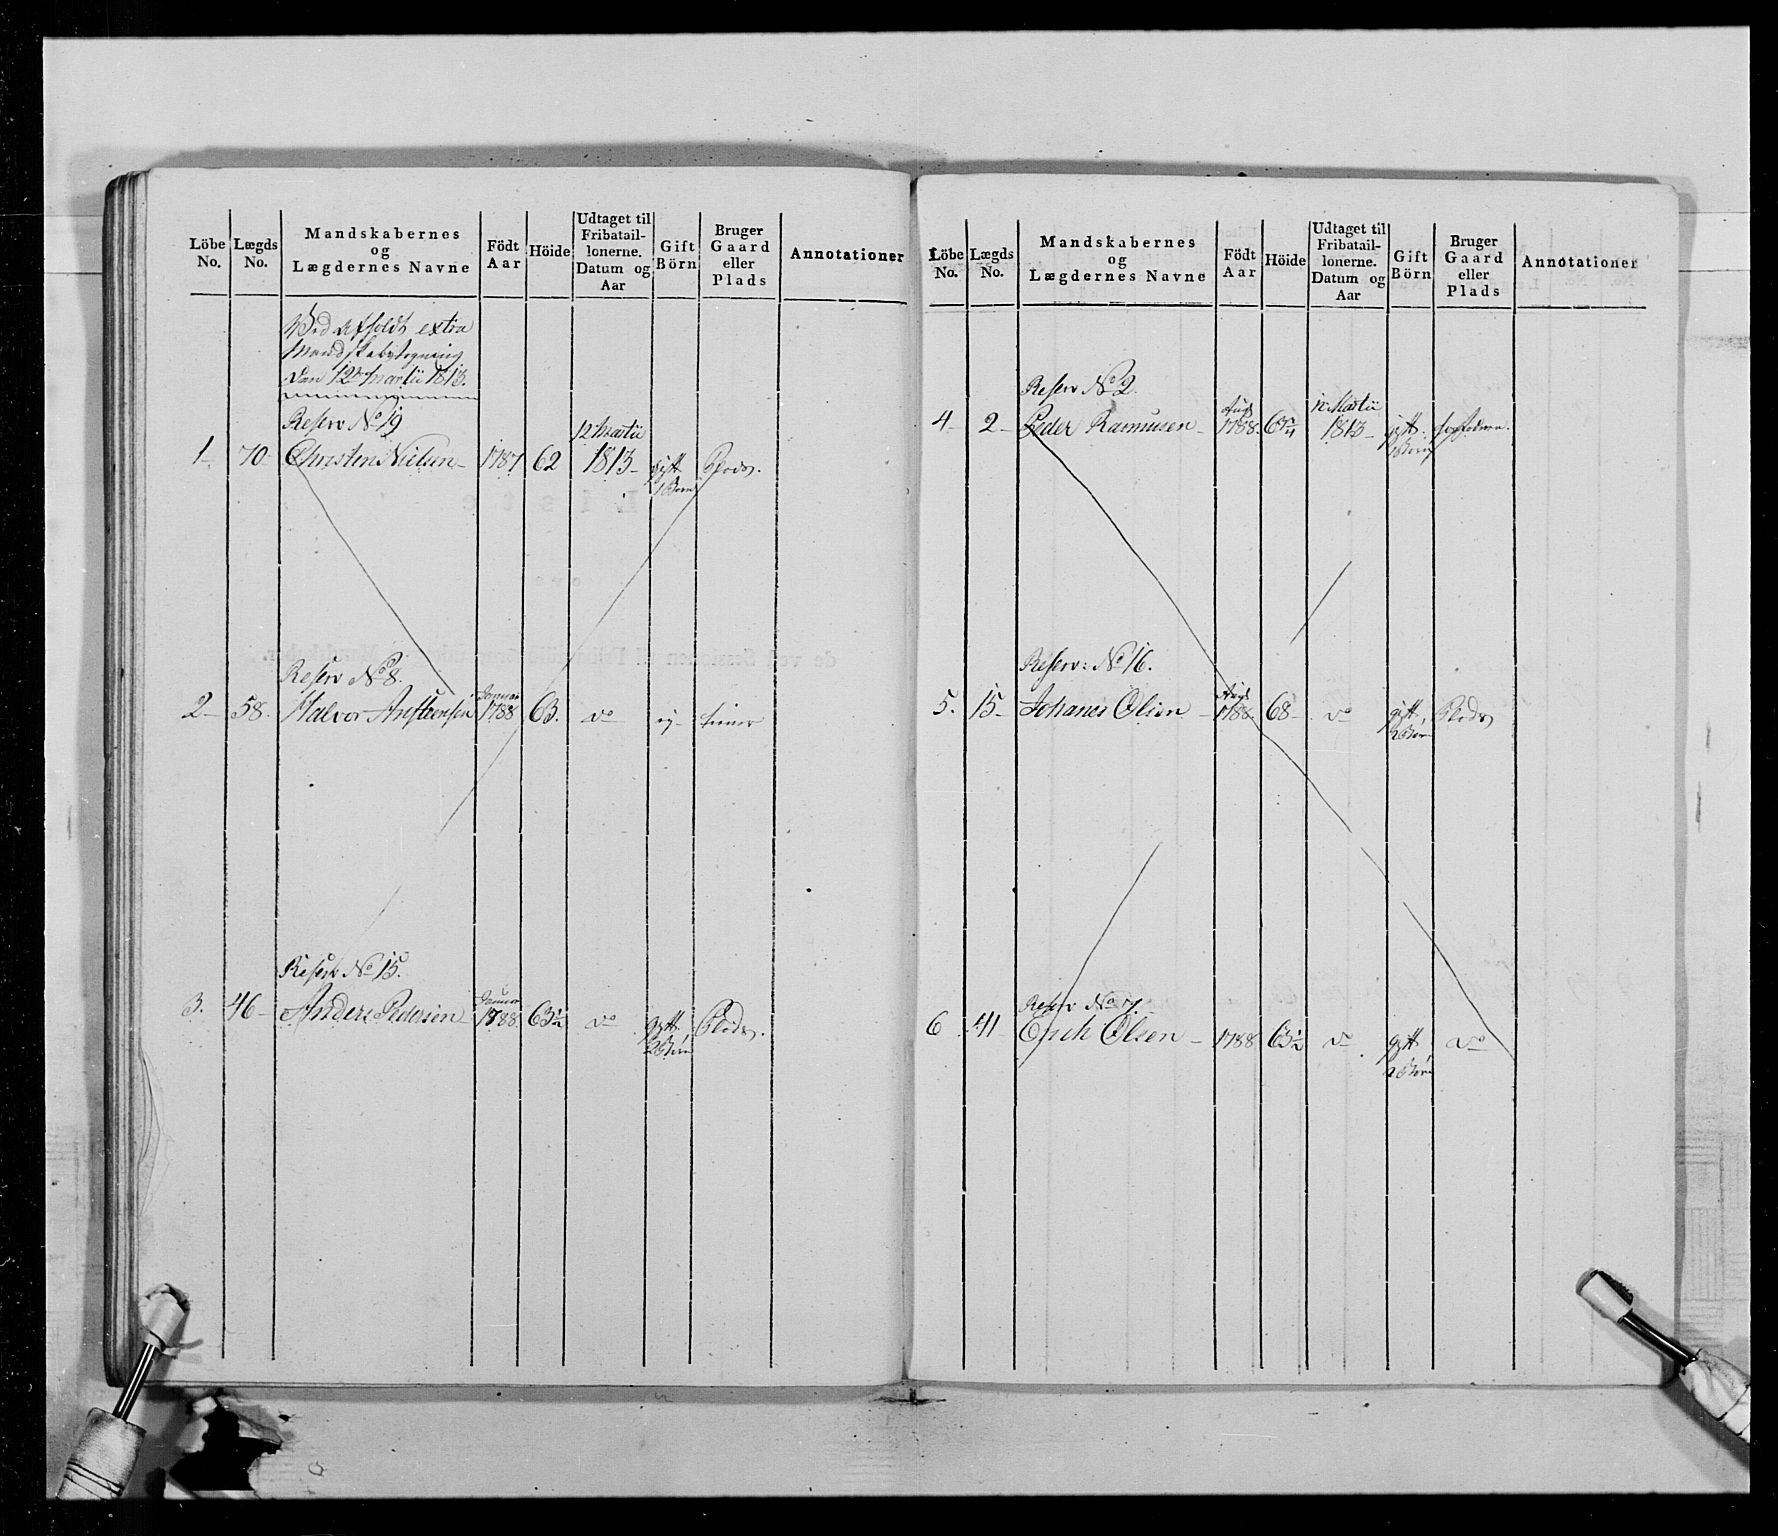 Löbe No. | Lægds No. | Mandskabernes og Lægdernes Navne | Födt Aar | Höide | Udtaget til Fribatail-lonerne. Datum og Aar | Gift Börn | Bruger Gaard eller Plads | Annotationer
Ved afholdt extra
Mandskabstegning
den 12te Martii 1813.
Reserv No 19
12 Martii
1. 70 Christen Nielsen 1787 62 1813 gift Plads.
1 Börn
Reserv No 8.
Januar
2 58. Halvor Anstensen 1788 63. do ej tiener
Reserv No 15.
Januar
3. 46 Anders Pedersen 1788 63½ do gift Plads.
2 Börn
Löbe No. | Lægds No. | Mandskabernes og Lægdernes Navne | Födt Aar | Höide | Udtaget til Fribatail-lonerne. Datum og Aar | Gift Börn | Bruger Gaard eller Plads | Annotationer
Reserv No 2.
Aug 12 Martii
4 2 Peder Rasmusen 1788. 1813 gift
Reserv: No 16.
Aug
5. 15 Johanes Olsen 1788 68 do gift Plads
2 Börn
Reserv No 7.
6 41 Erich Olsen 1788 63½ do gift do
2 Börn